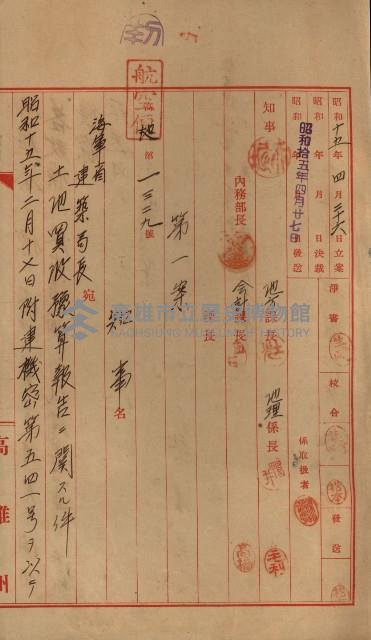 昭和十五年四月二十六日立案
昭和 年 月 日決裁
昭和 年 月 日發送
昭和拾五年四月廿七日
淨書
校合
發送
係取扱者
知事
内務部長
地方課長
會計課長
課長
地理係長
高橋
毛利
航空便
地第一三二九號
第一案
知事名
海軍省
建築局長宛
土地買收豫算報告ニ關スル件
昭和十五年二月十七日附建機密第五四一號ヲ以テ
高雄州
高雄市立歷史博物館
KAOHSIUNG MUSEUM OF HISTORY